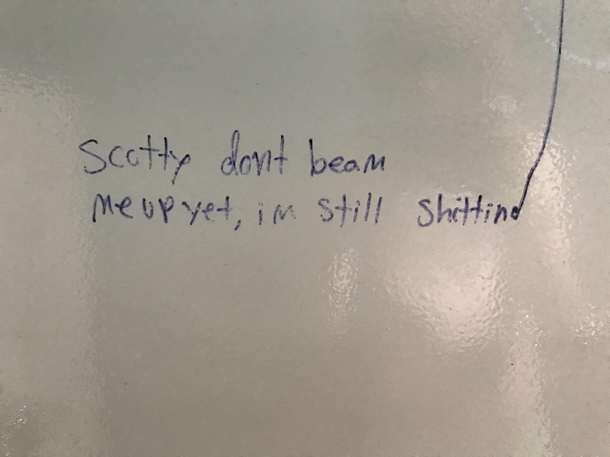 Scotty dont beam
me up yet, im still shittin